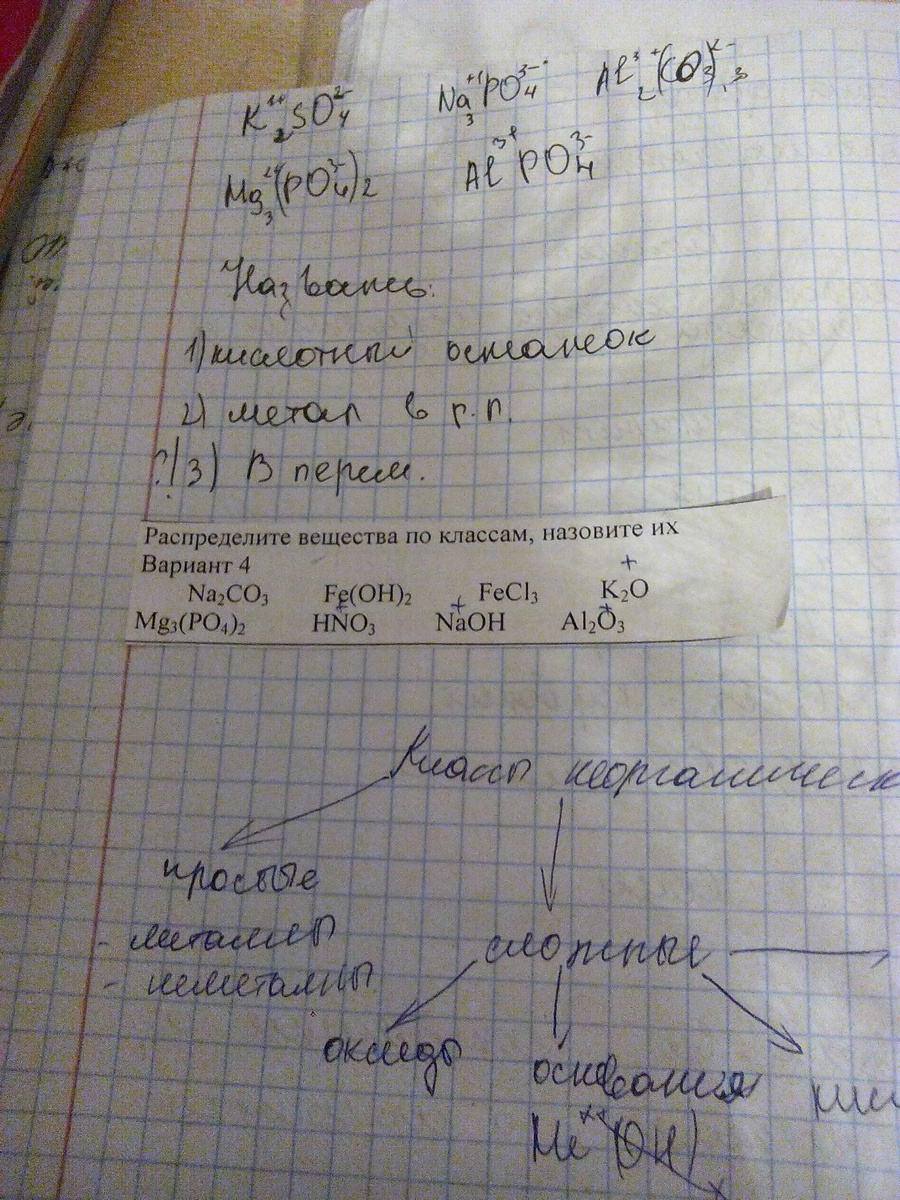 K₂¹⁺SO₄²⁻ Na₃⁺¹PO₄³⁻ Al₂³⁺(CO₃)₃
Mg₃²⁺(PO₄³⁻)₂ Al³⁺PO₄³⁻
Назвать:
1) кислотный остаток
2) метал в р.п.
?! 3) В перем.
Распределите вещества по классам, назовите их
Вариант 4
Na₂CO₃ Fe(OH)₂ FeCl₃ K₂O
Mg₃(PO₄)₂ HNO₃ NaOH Al₂O₃
Классы неорганическ
простые
- металлы
сложные
- неметаллы
оксиды
основания
Me (OH)